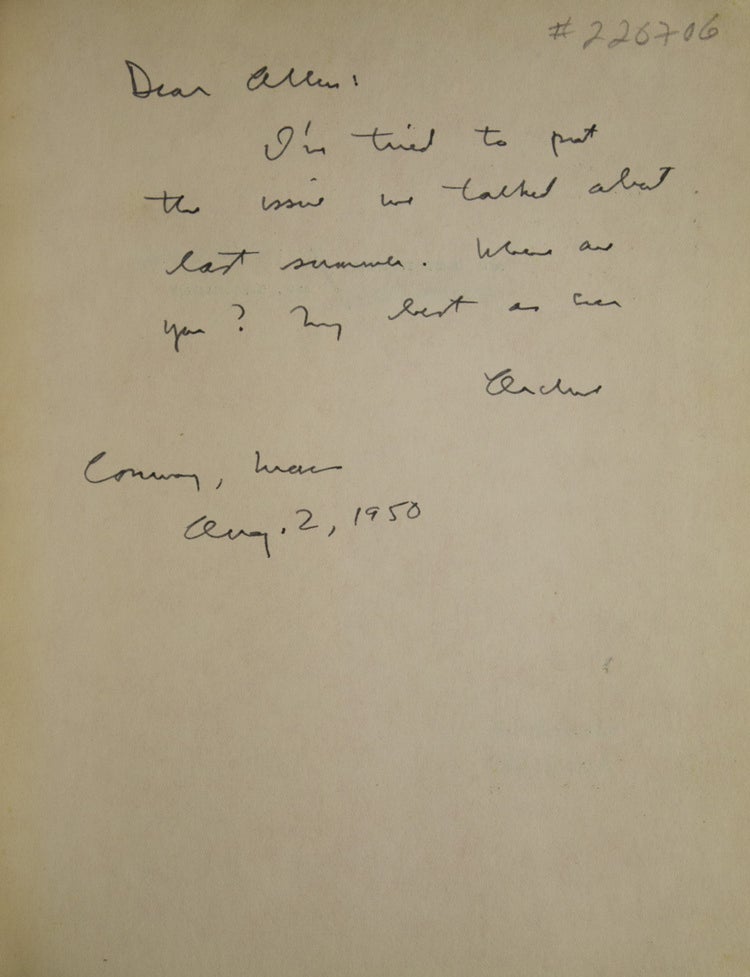 #226706
Dear Allen:
I've tried to put
the issue we talked about
last summer. Where are
you? My best as ever
Archie
Conway, Mass
Aug. 2, 1950